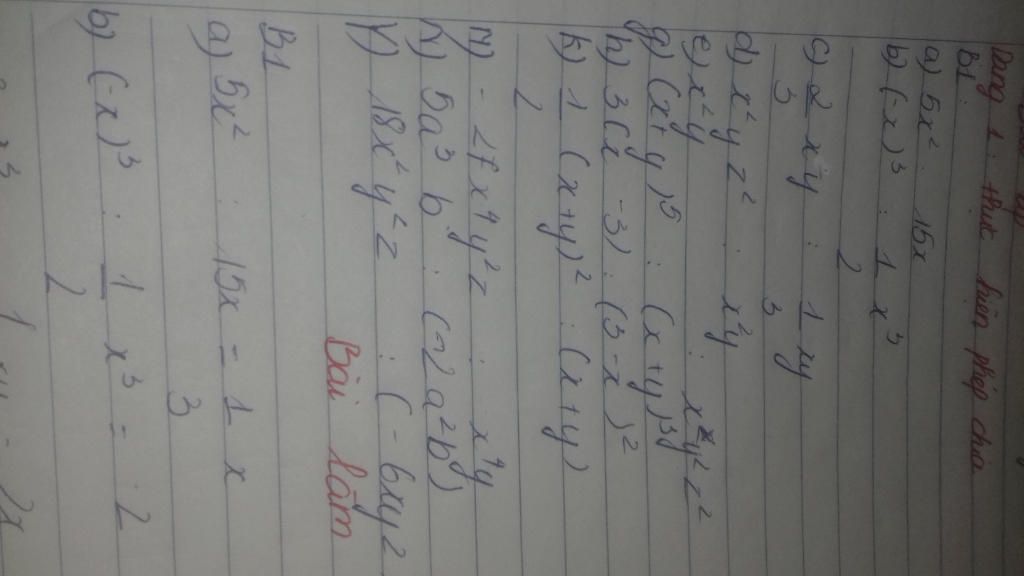 Dạng 1: thực hiện phép chia
B1:
a) 5x² : 15x
b) (-x)³ : 1/2 x³
c) 2/3 x²y : 1/3 xy
d) x²yz² : x²y
e) x²y : x²y²z²
g) (x+y)⁵ : (x+y)³
h) 3(x-3) : (3-x)²
k) 1/2 (x+y)² : (x+y)
x⁴y²z : x⁴y
5a³b : (-2a²b)
18x²y²z : (-6xyz
Bài làm
B1
a) 5x² : 15x = 1/3 x
b) (-x)³ : 1/2 x³ = -2